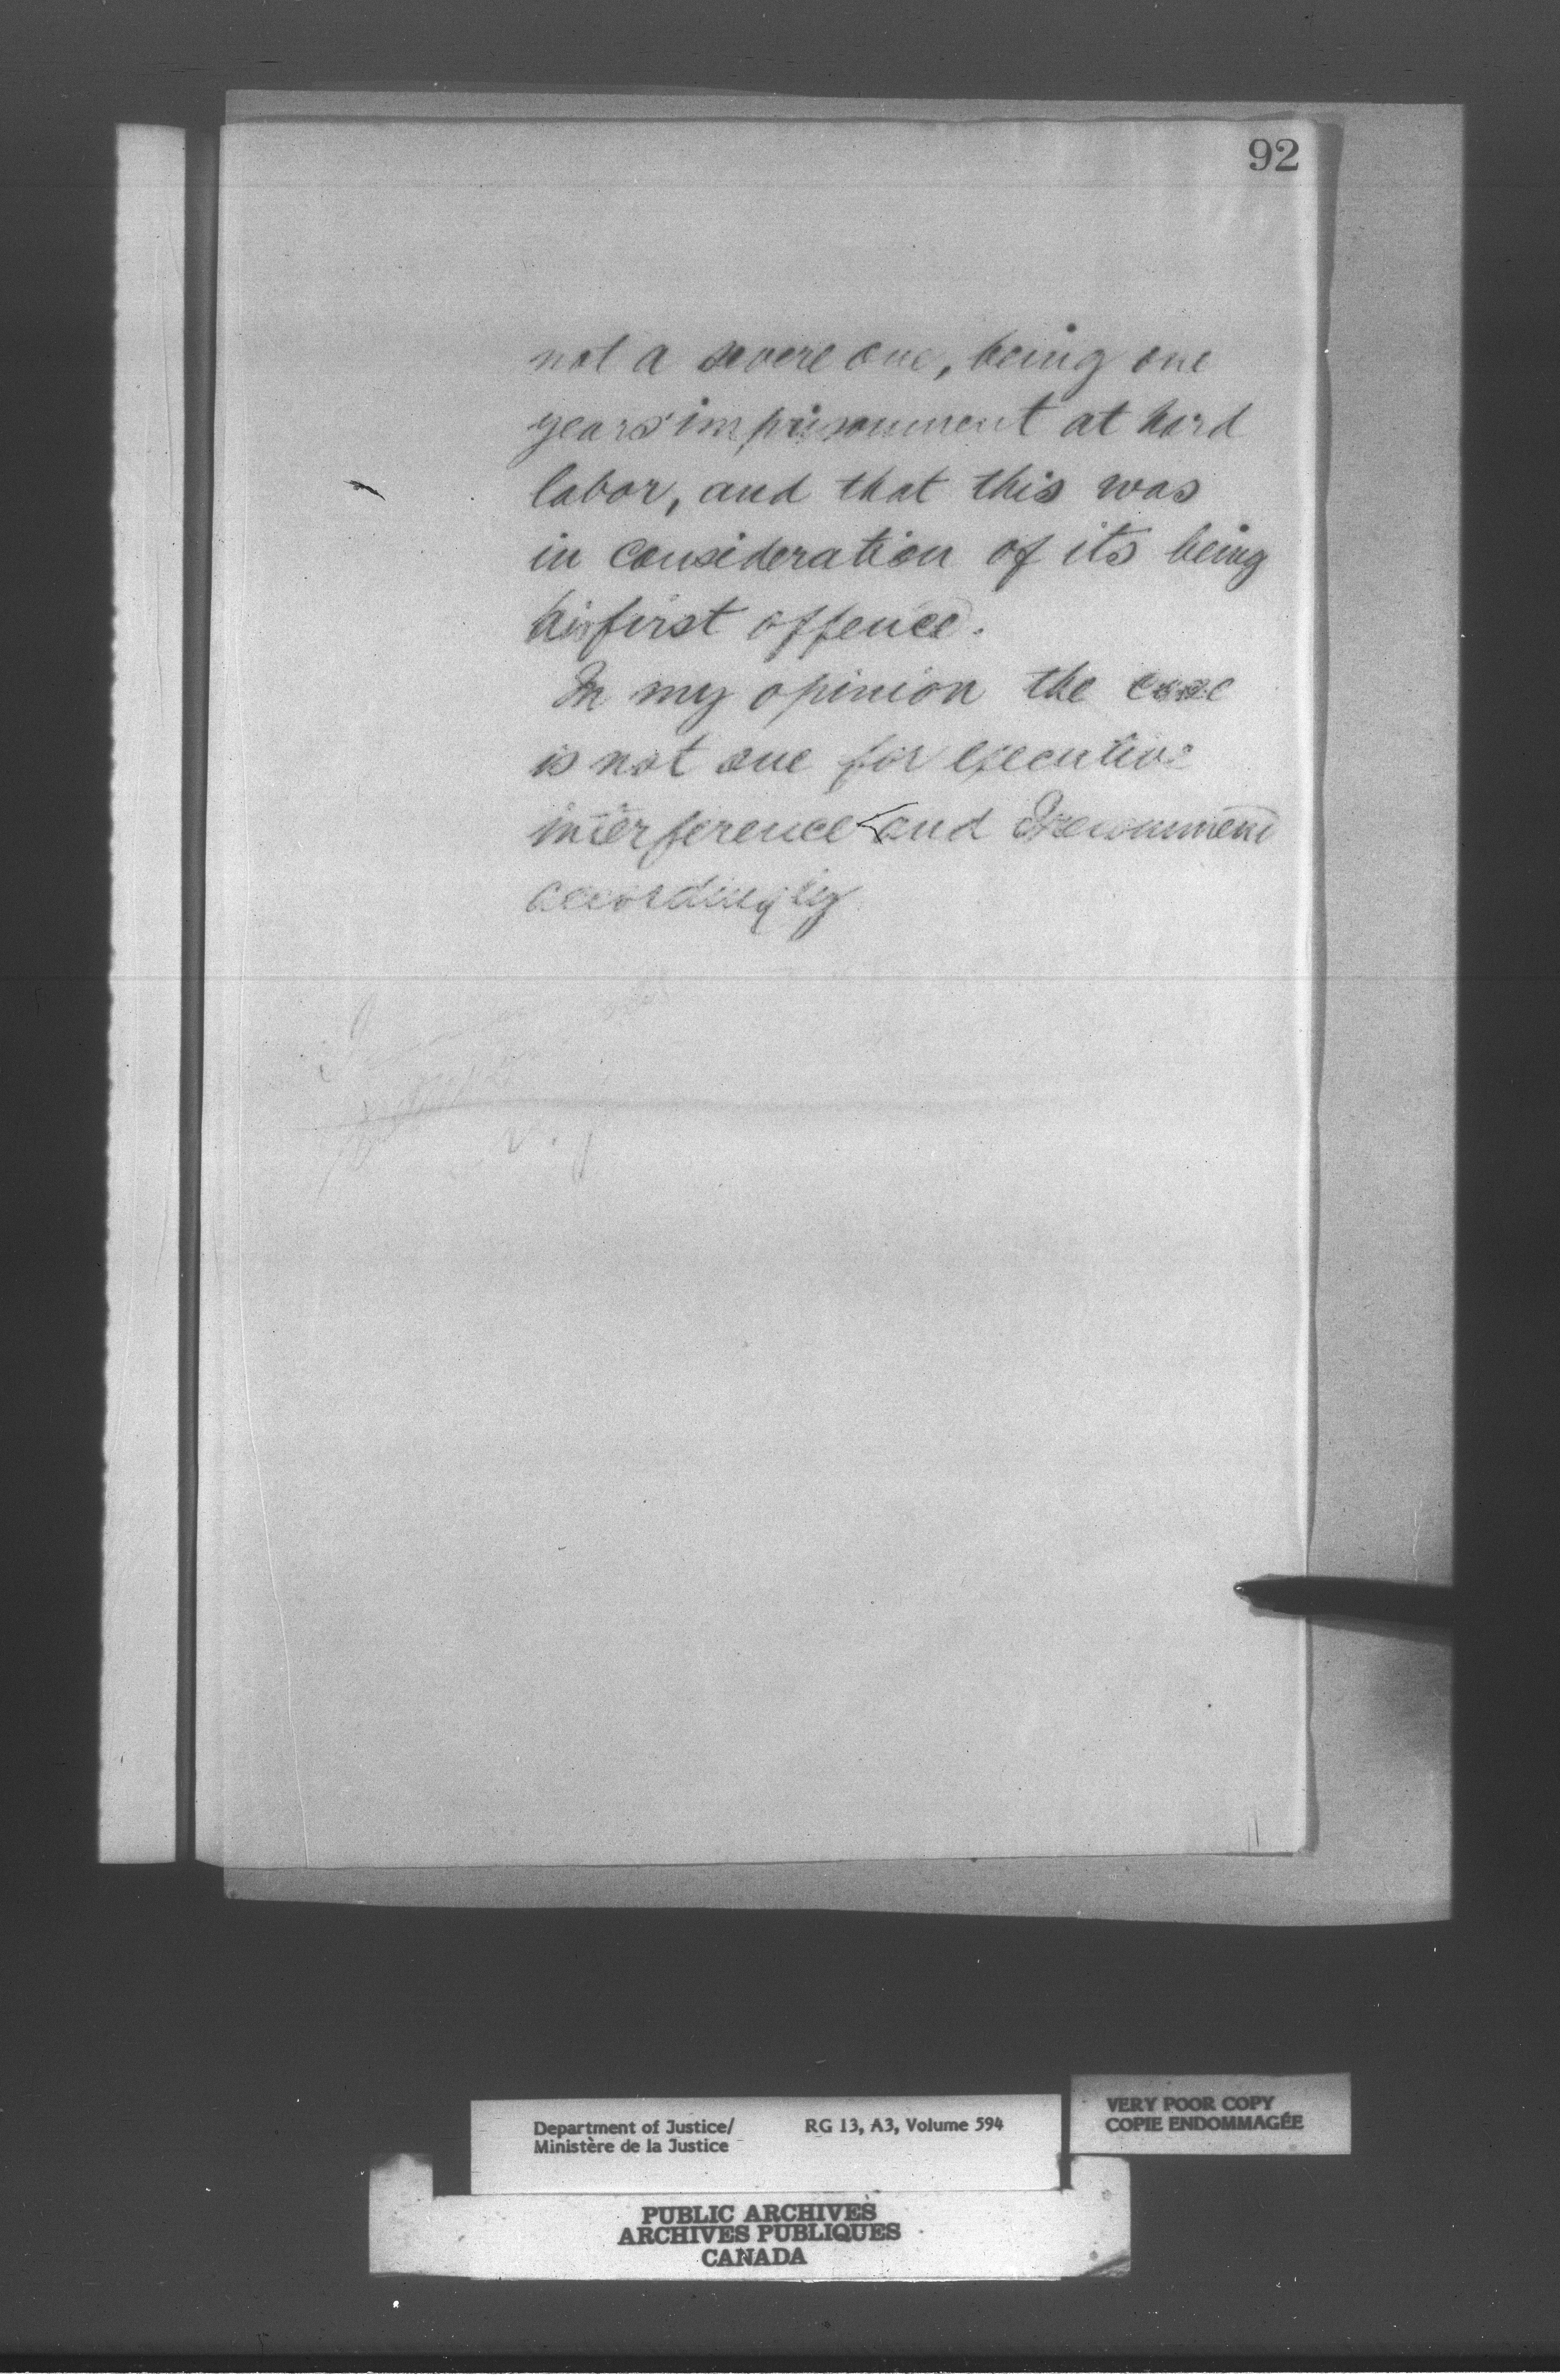 92
not a severe one, being one
years' imprisonment at hard
labor, and that this was
in consideration of its being
his first offence.
In my opinion the case
is not one for executive
interference and I recommend
accordingly
Department of Justice/
Ministère de la Justice
RG 13, A3, Volume 594
VERY POOR COPY
COPIE ENDOMMAGÉE
PUBLIC ARCHIVES
ARCHIVES PUBLIQUES
CANADA